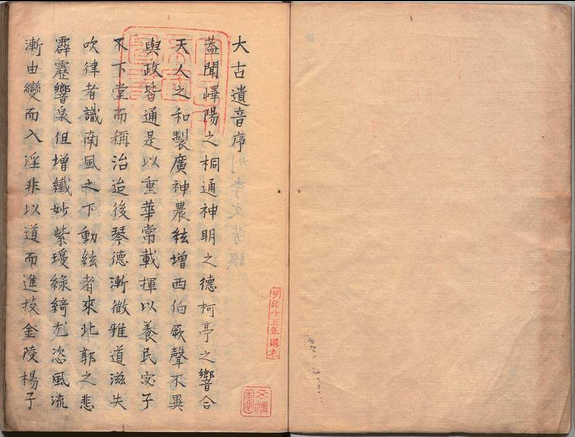 大古遺音序
蓋聞嶧陽之桐通神明之德柯亭之響合
天人之和製廣神農絃增西伯厥聲不異
與政皆通是以重華常載揮以養民宓子
不下堂而稱治迨後琴德漸微雅道滋失
吹律者識南風之下動絃者來北郭之悲
霹靂響泉但增纖妙紫瓊綠綺尤恣風流
漸由變而入淫非以道而進技金陵楊子
明治十五年購求